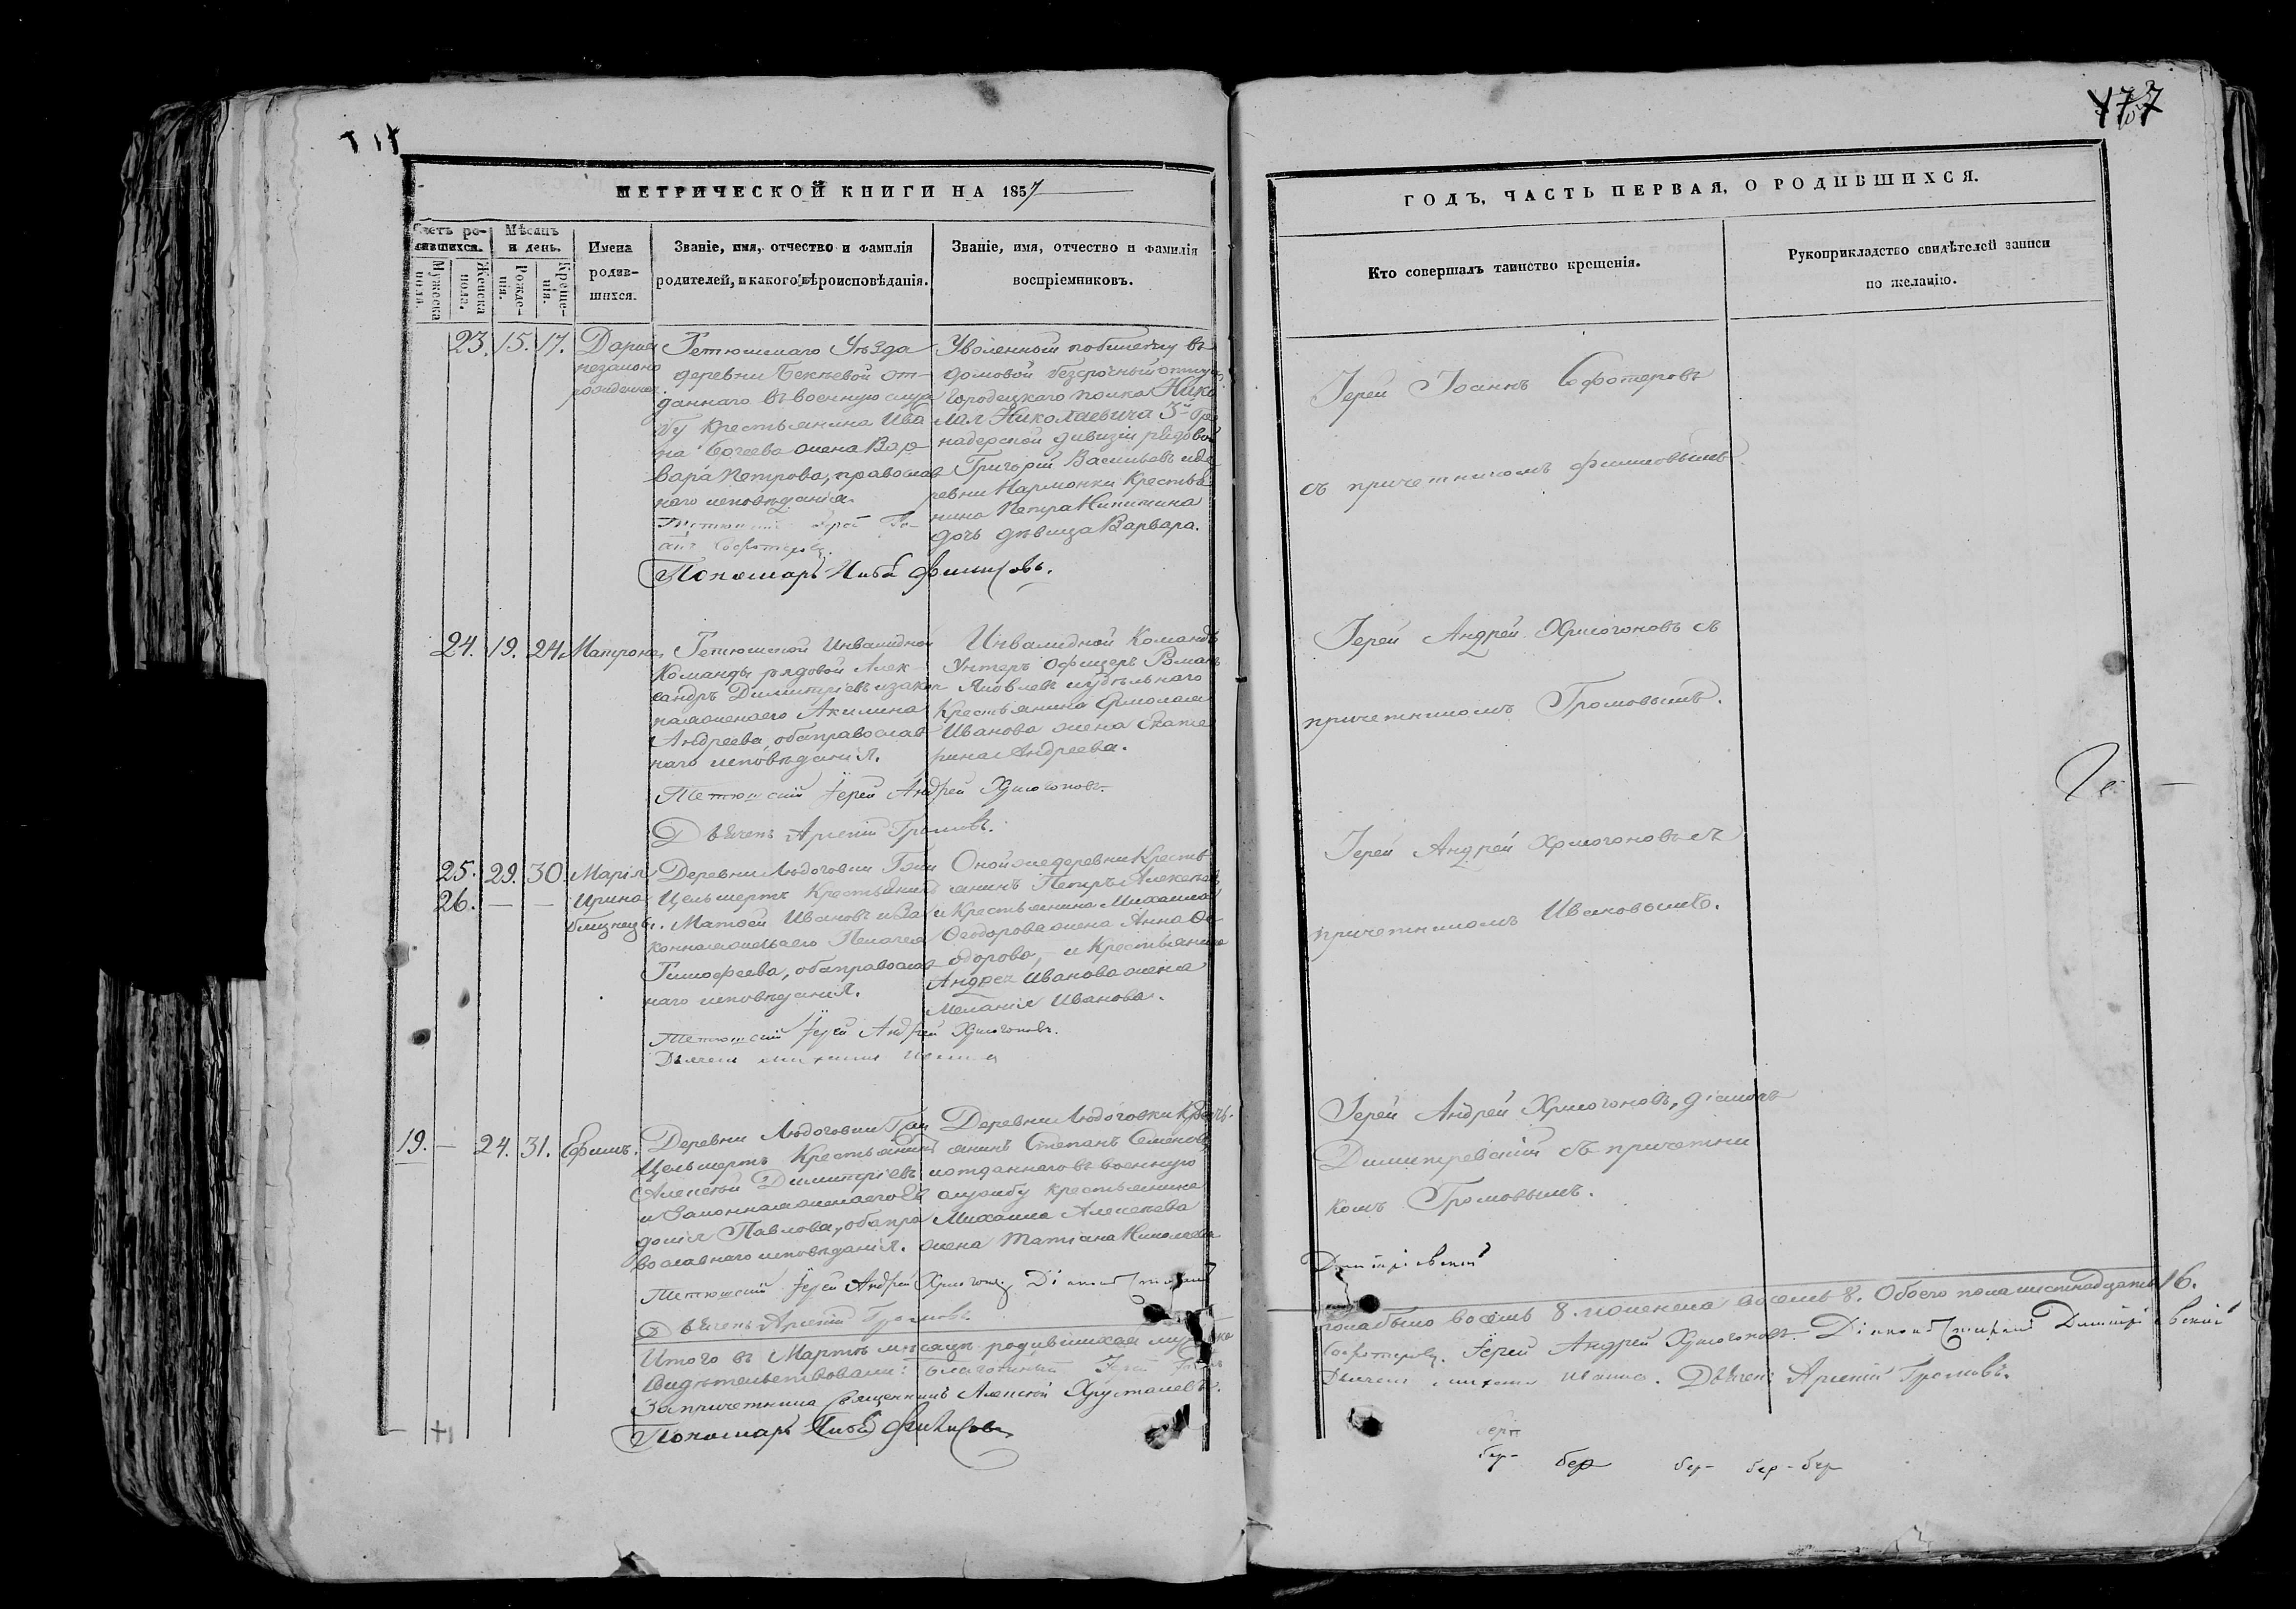 177
МЕТРИЧЕСКОЙ КНИГИ НА 1857
Счетъ ро-
дившихся.
Мужеска
пола.
Женска
пола.
Мѣсяцъ
и день.
Рожде-
нія.
Креще-
нія.
Имена
родив-
шихся.
Званіе, имя, отчество и фамилія
родителей, и какого вѣроисповѣданія.
Званіе, имя, отчество и фамилія
воспріемниковъ.
23. 15. 17. Дарья
незаконно
рожденная
Тетюшскаго Уѣзда
деревни Бекѣевой от-
даннаго въ военную служ
бу крестьянина Ива
на Сочеева жена Вар
вара Петрова, православ
наго исповѣданія.
Тетюшский Іерей Іо-
аннъ Софотеровъ.
Пономарь Филиповъ.
Уволенный по билету въ
домовой безсрочный отпускъ
Городецкаго полка Нико
лая Николаевича 3й Гре
надерской дивизіи рядовой
Григорій Васильевъ и де
ревни Нармонки Крестья
нина Петра Никитина
дочь дѣвица Варвара.
24. 19. 24. Матрона
Тетюшской Инвалидной
Команды рядовой Алек-
сандръ Димитріевъ и закон
ная жена его Акилина
Андреева, оба православ
наго исповѣданія.
Тетюшскій Іерей Андрей Хрисогоновъ.
Дьячекъ Арсеній Громовъ.
Инвалидной Команды
Унтеръ Офицеръ Романъ
Яковлевъ и удѣльнаго
Крестьянина Ермолая
Иванова жена Екате
рина Андреева.
25. 29. 30. Марія
26. — — Ирина
близнецы.
Деревни Людоговки Тожи
Цельмертъ Крестьянинъ
Матѳей Ивановъ и За
конная жена его Пелагея
Тимофеева, оба православ
наго исповѣданія.
Тетюшскій Іерей Андрей Хрисогоновъ.
Дьячекъ Михаилъ
Оной же деревни Кресть
янинъ Петръ Алексѣевъ
и Крестьянина Михаила
Ѳеодорова жена Анна Ѳе
одорова, — и Крестьянина
Андрея Иванова жена
Меланія Иванова.
19. — 24. 31. Ефимъ.
Деревни Людоговки Тожи
Цельмертъ Крестьянинъ
Алексѣй Димитріевъ
и Законная жена его Ев
докія Павлова, оба пра
вославнаго исповѣданія.
Тетюшскій Іерей Андрей Хрисогоновъ Діаконъ
Дьячекъ Арсеній Громовъ
Деревни Людоговки Кресть-
янинъ Степанъ Семеновъ
и отданнаго въ военную
службу крестьянина
Михаила Алексѣева
жена Татіана Николаева
Итого въ Мартѣ мѣсяцѣ родившихся мужеска
Свидѣтельствовали: благочинный Іерей Іоаннъ
За причетника Священникъ Алексѣй Хрусталевъ.
Пономарь Филиповъ
ГОДЪ, ЧАСТЬ ПЕРВАЯ, О РОДИВШИХСЯ.
Кто совершалъ таинство крещенія.
Рукоприкладство свидѣтелей записи
по желанію.
Іерей Іоаннъ Софотеровъ
съ причетникомъ Филиповымъ
Іерей Андрей Хрисогоновъ съ
причетникомъ Громовымъ.
Іерей Андрей Хрисогоновъ съ
причетникомъ Ивановымъ.
Іерей Андрей Хрисогоновъ, діаконъ
Димитревскій съ причетни
комъ Громовымъ.
Димитріевской
пола было восемь 8. и женска восемь 8. Обоего пола шестнадцать 16.
Софотеровъ. Іерей Андрей Хрисогоновъ. Діаконъ Димитріевской
Дьячекъ Михаилъ. Дьячекъ Арсеній Громовъ.
бер- бер бер- бер- бер